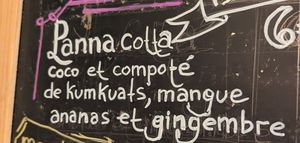 Panna cotta
coco et compoté
de kumkuats, mangue
ananas et gingembre